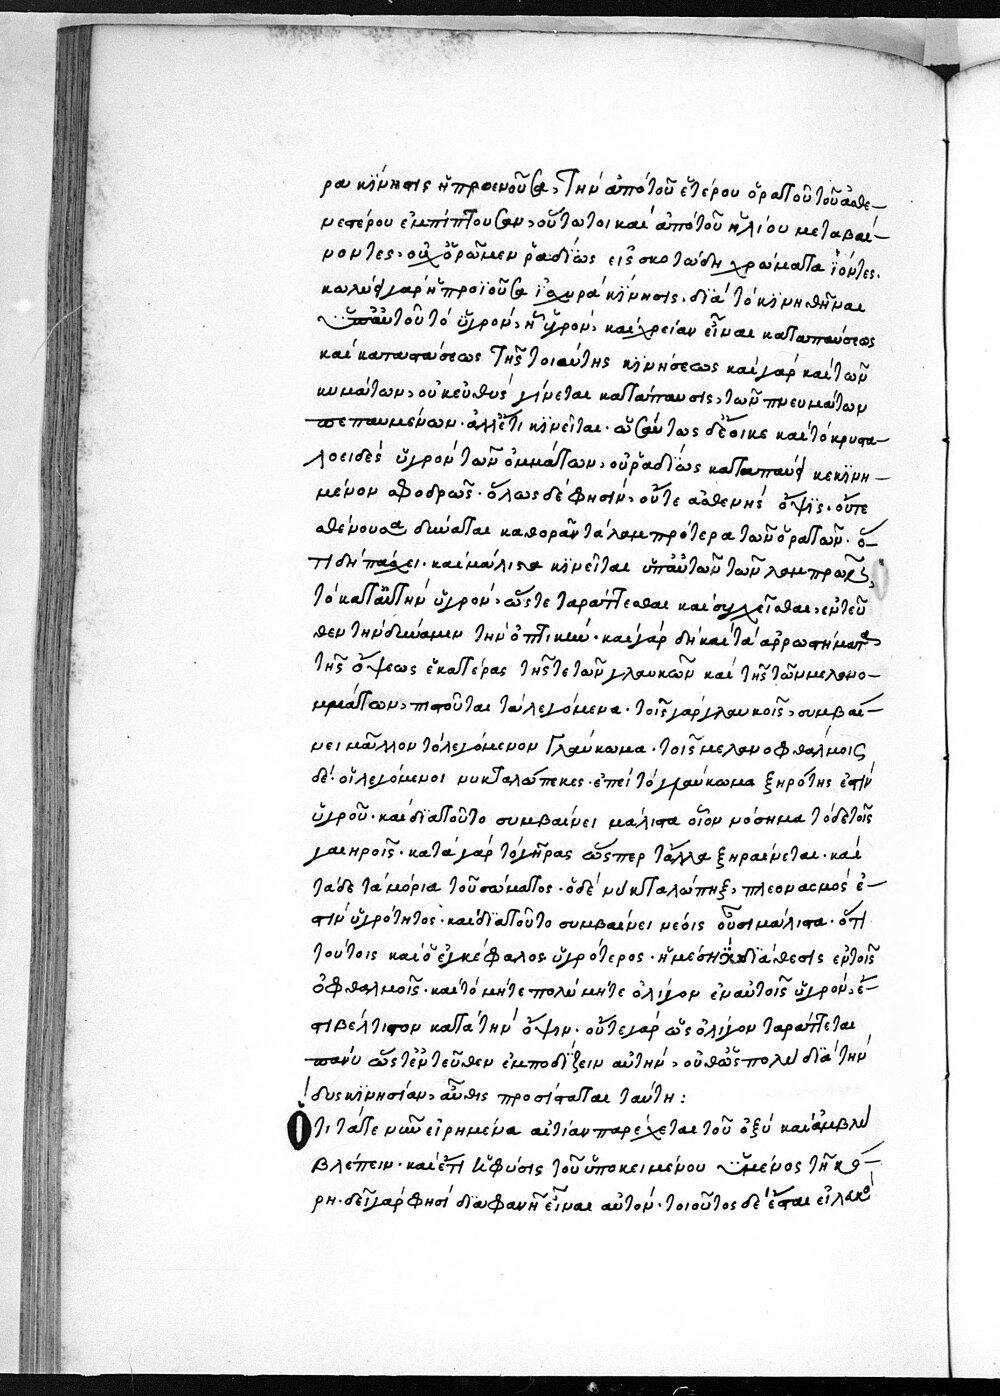 ρα κίνησις ἢ προενοῦσα, τὴν ἀπὸ τοῦ ἑτέρου ὁρατοῦ τοῦ ἀσθε-
νεστέρου ἐμπίπτουσαν, οὕτω τοι καὶ ἀπὸ τοῦ ἡλίου μεταβαί-
νοντες, οὐχ ὁρῶμεν ῥαδίως εἰς σκοτώδη χρώματα ἰόντες.
κωλύει γὰρ ἡ προϊοῦσα ἰσχυρὰ κίνησις. διὰ τὸ κινηθῆναι
ὑπ' αὐτοῦ τὸ ὑγρόν, ἢ ὑγρόν, καὶ χρείαν εἶναι καταπαύσεως
καὶ καταπαύσεως τῆς τοιαύτης κινήσεως καὶ γὰρ καὶ τῶν
κυμάτων, οὐκ εὐθὺς γίνεται κατάπαυσις, τῶν πνευμάτων
πεπαυμένων. ἀλλ' ἔτι κινεῖται. ὡσαύτως δὲ ἔοικε καὶ τὸ κρυστα-
λοειδὲς ὑγρὸν τῶν ὀμμάτων, οὐ ῥαδίως καταπαύει κεκινη-
μένον σφοδρῶς. ὅλως δὲ φησὶν, οὔτε ἀσθενὴς ὄψις. οὔτε
σθένουσα δύναται καθορᾶν τὰ λαμπρότερα τῶν ὁρατῶν. ὅ-
τι δὴ πάσχει. καὶ μάλιστα κινεῖται ὑπ' αὐτῶν τῶν λαμπρῶν,
τὸ κατ' αὐτὴν ὑγρόν, ὥστε ταράττεσθαι καὶ συγχεῖσθαι, ἐντεῦ
θεν τὴν δύναμιν τὴν ὀπτικήν. καὶ γὰρ δὴ καὶ τὰ ἀρρωστήματα
τῆς ὄψεως ἑκατέρας τῆς τε τῶν γλαυκῶν καὶ τῆς τῶν μελανο-
μμάτων, πιστοῦται τὰ λεγόμενα. τοῖς γὰρ γλαυκοῖς, συμβαί-
νει μᾶλλον τὸ λεγόμενον γλαύκωμα. τοῖς μελανοφθάλμοις
δὲ οἱ λεγόμενοι νυκταλώπεκες. ἐπεὶ τὸ γλαύκωμα ξηρότης ἐστὶν
ὑγροῦ. καὶ διὰ τοῦτο συμβαίνει μάλιστα οἷον νόσημα τόδε τοῖς
γαιηροῖς. κατὰ γὰρ τὸ γῆρας ὥσπερ τἄλλα ξηραίνεται. καὶ
τάδε τὰ μόρια τοῦ σώματος. ὁ δὲ νυκταλώπηξ, πλεονασμός ἐ-
στιν ὑγρότητος. καὶ διὰ τοῦτο συμβαίνει νέοις οὖσι μάλιστα. ὅτι
τούτοις καὶ ὁ ἐγκέφαλος ὑγρότερος. ἡ μέση διάθεσις ἐν τοῖς
ὀφθαλμοῖς. καὶ τὸ μήτε πολὺ μήτε ὀλίγον ἐν αὐτοῖς ὑγρόν, ἐ-
στι βέλτιστον κατὰ τὴν ὄψιν. οὔτε γὰρ ὡς ὀλίγον ταράττεται
πάνυ ὥστ' ἐντεῦθεν ἐμποδίζειν αὐτήν, οὔθ' ὡς πολὺ διὰ τὴν
δυσκινησίαν, αὖθις προσίσταται ταύτῃ:
Ὅτι τά τε νῦν εἰρημένα αἰτίαν παρέχεται τοῦ ὀξὺ καὶ ἀμβλὺ
βλέπειν. καὶ ἔτι ἡ φύσις τοῦ ὑποκειμένου ὑμένος τῇ κό-
ρῃ. δεῖ γάρ φησι διαφανῆ εἶναι αὐτόν. τοιοῦτος δὲ ἔσται εἰ λευκὸ